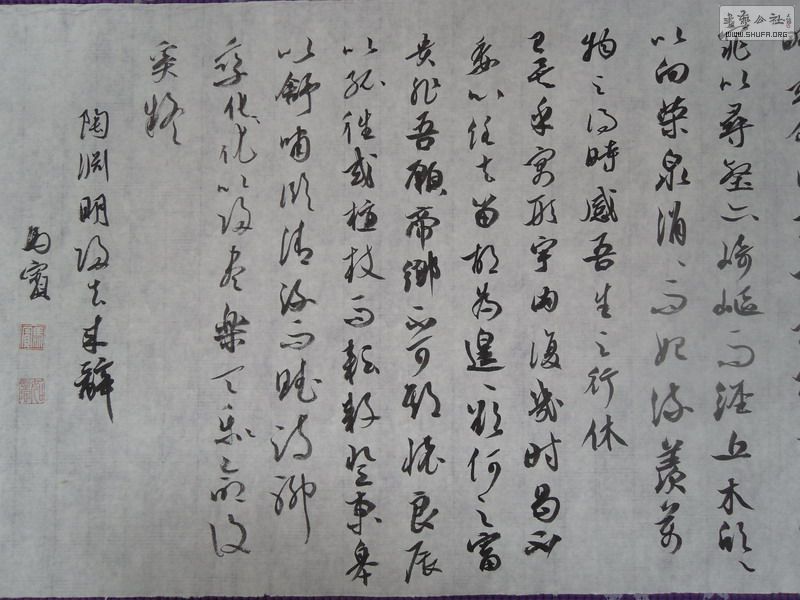 書藝公社
WWW.SHUFA.ORG
窕以尋壑亦崎嶇而經丘木欣々
以向榮泉涓々而始流羨萬
物之得時感吾生之行休
已矣乎寓形宇內復幾時曷不
委心任去留胡為遑々欲何之富
貴非吾願帝鄉不可期懷良辰
以孤往或植杖而耘耔登東皋
以舒嘯臨清流而賦詩聊
乘化以歸盡樂命復
奚疑
陶淵明歸去來辭
馬